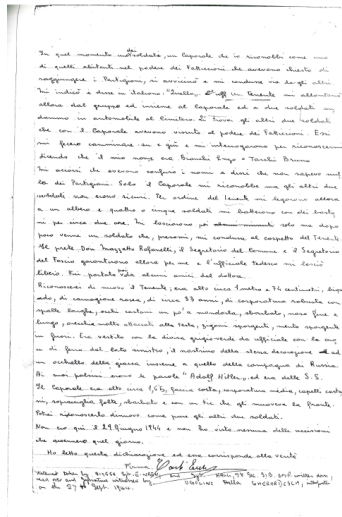 In quel momento dei soldato, un Caporale che io riconobbi come uno
di quelli abitanti nel podere dei Falticcioni che avevano chiesto di
raggiungere i Partigiani, si avvicinò e mi condusse via dagli altri.
Mi indicò e disse in italiano: "Quello". Un Tenente mi allontanò
allora dal gruppo ed insieme al Caporale ed a due soldati
in automobile al Cimitero. Li trovai gli altri due soldati
che con il Caporale avevano vissuto al podere dei Falticcioni. Essi
mi fecero camminare su e giù e mi interrogarono per riconoscermi
dicendo che il mio nome era Bianchi Enzo e Tacchi Bruno
Mi accorsi che avevano confuso i nomi e dissi che non sapevo nul
la dei Partigiani. Solo il Caporale mi riconobbe ma gli altri due
soldati non erano sicuri. Per ordine del Tenente mi legarono allora
a un albero e quattro o cinque soldati mi batterono con dei bastoni
per circa due ore. Mi lasciarono poi solo ma dopo
poco venne un soldato che, presomi, mi condusse al cospetto del Tenente.
Il prete Don Mazzetto Rafanelli, il Segretario del Comune e il Segretario
del Fascio garantirono allora per me e l'ufficiale tedesco mi lasciò
libero. Fui portato via da alcuni amici dal dottore.
Riconoscerei di nuovo il Tenente; era alto circa 1 metro e 74 centimetri,
di carnagione rosea, di circa 33 anni, di corporatura robusta con
spalle larghe, occhi castani un po' a mandorla, sbarbato, naso fine e
lungo, orecchie molto attaccate alla testa, zigomi sporgenti, mento sporgente
in fuori. Era vestito con la divisa grigioverde da ufficiale con la croce
di ferro dal lato sinistro, il nastrino della stessa decorazione ad
un occhiello della giacca insieme a quello della campagna di Russia.
Ai suoi polsini erano le parole "Adolf Hitler", ed era delle S.S.
Il Caporale era alto circa 1,65, faccia corta, corporatura media, capelli casta
ni, sopracciglia folte, sbarbato e con un tic che gli muoveva la fronte.
Potrei riconoscerlo di nuovo come pure gli altri due soldati.
Non ero qui il 29 Giugno 1944 e non ho visto nessuna delle uccisioni
che avvennero quel giorno.
Ho letto questa dichiarazione ed essa corrisponde alla verità
Firma
on the 27th Sept. 1944.